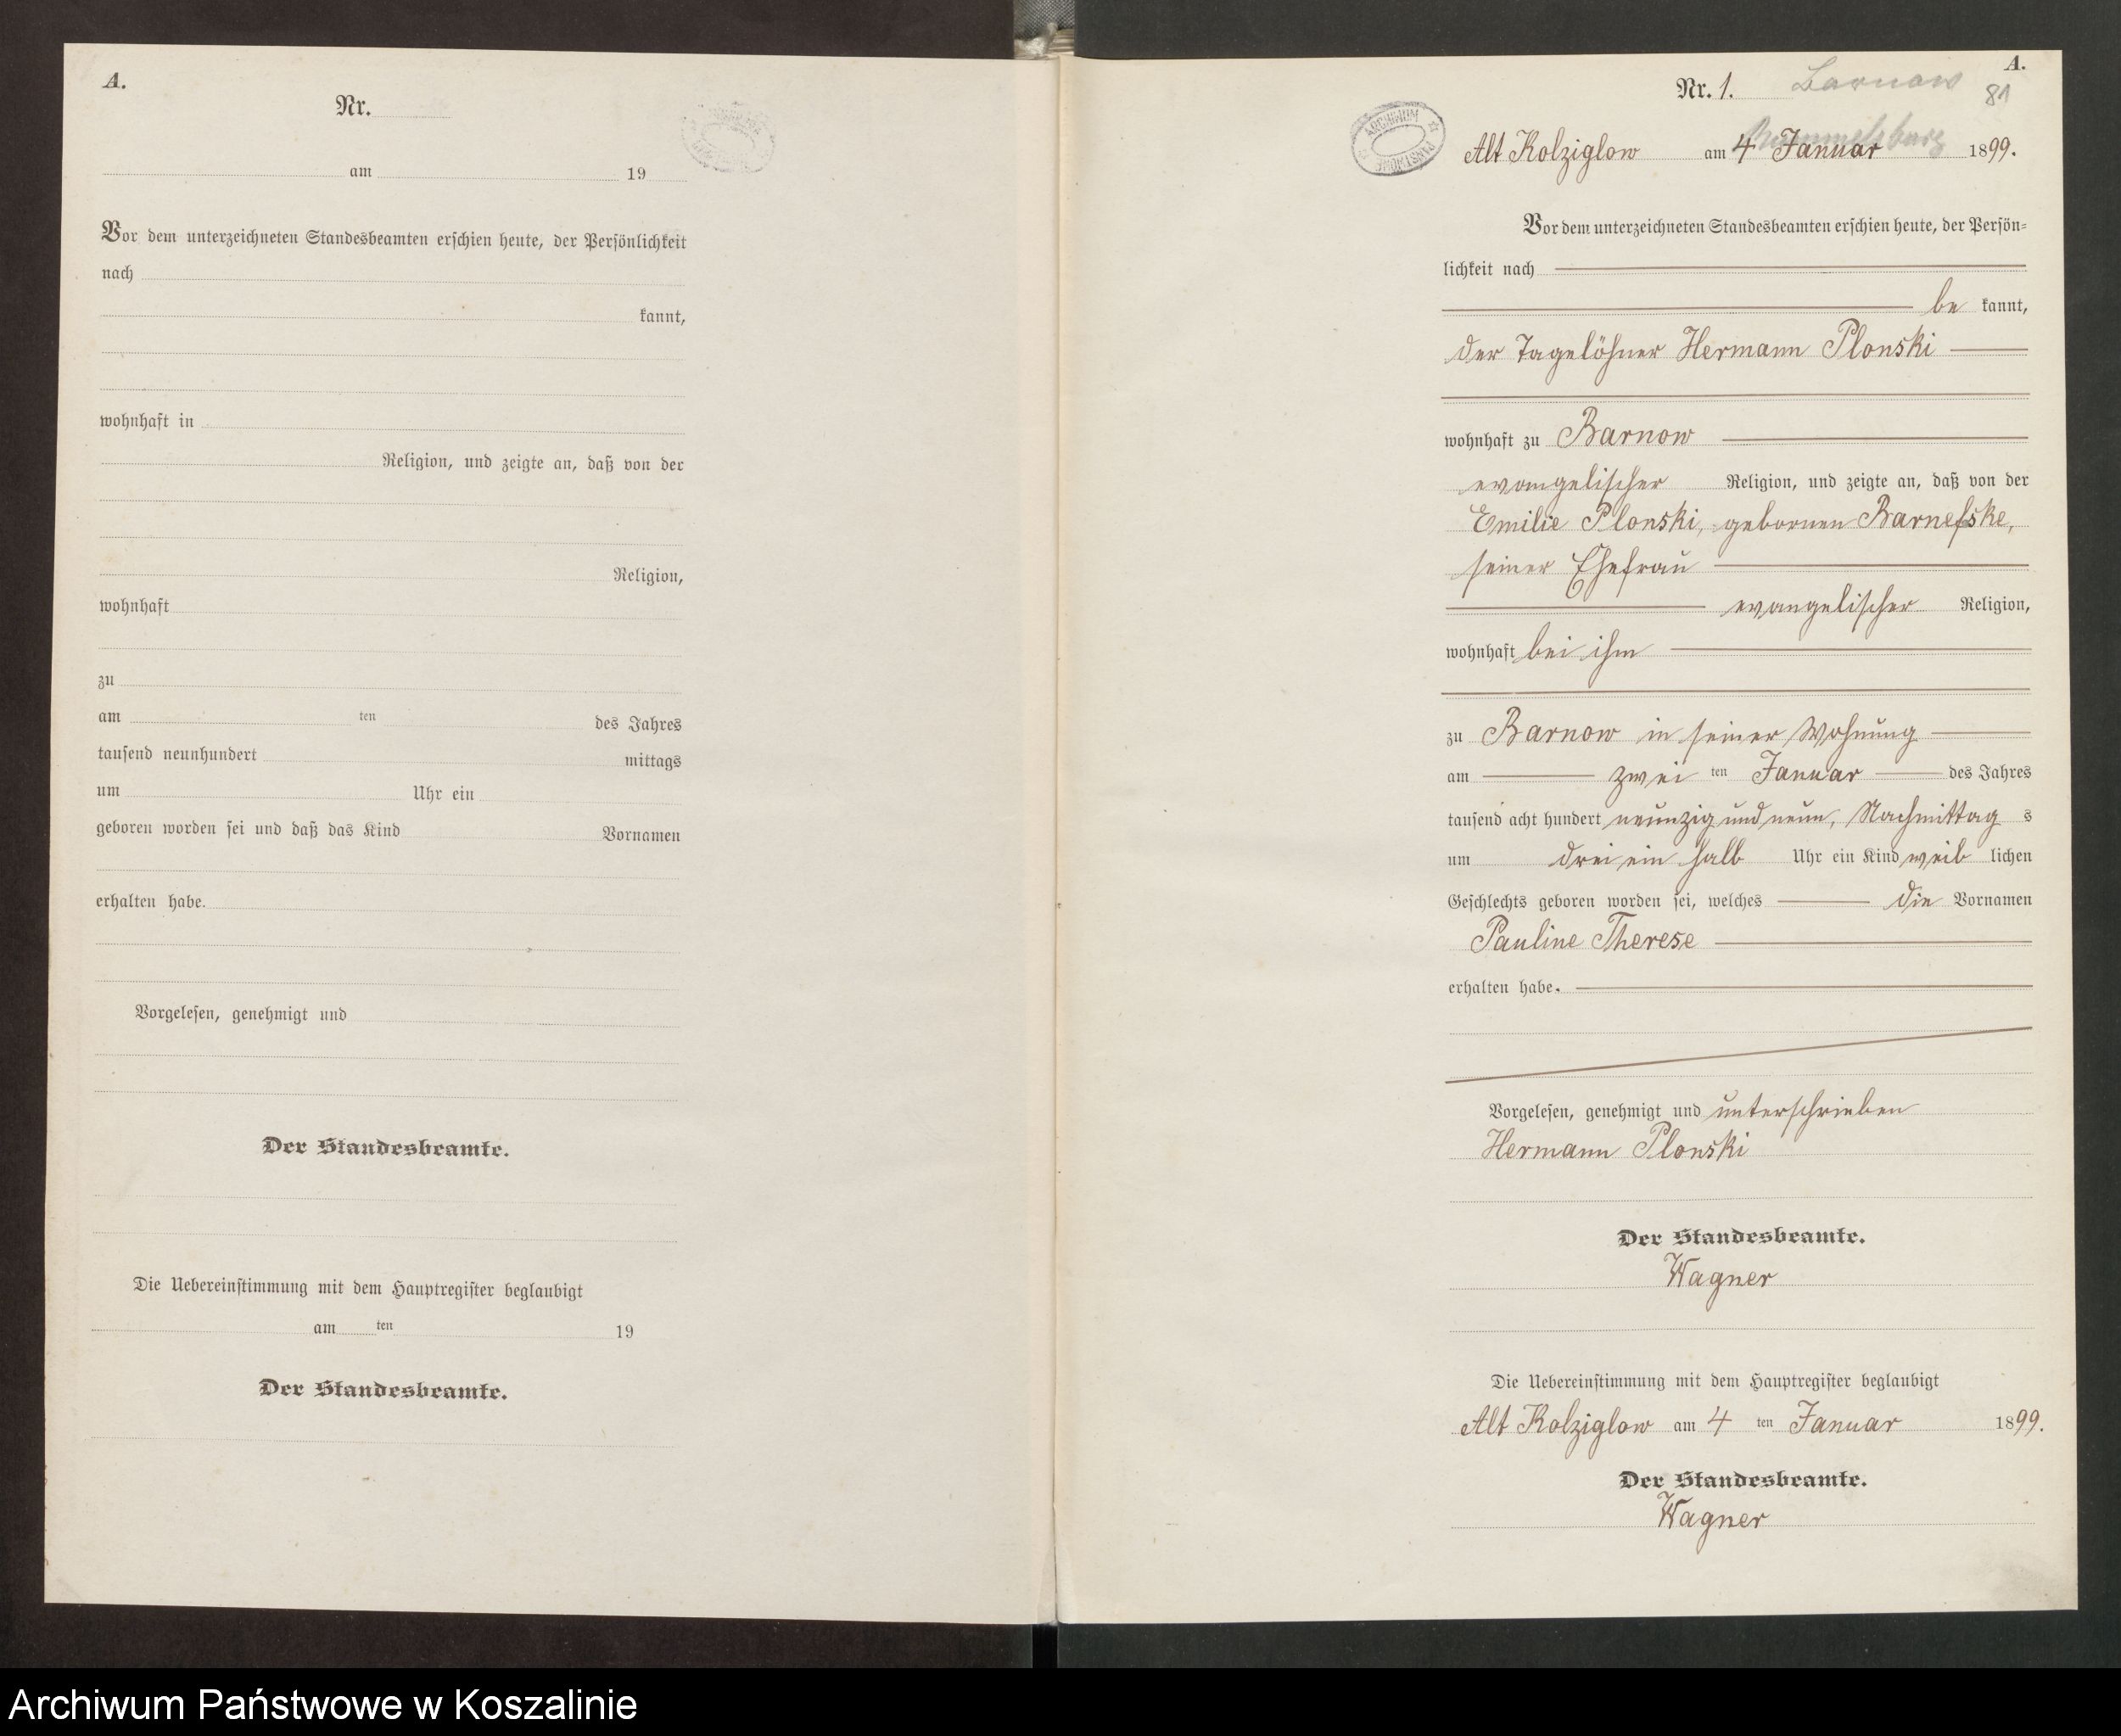 A.
Nr.
am 19
Vor dem unterzeichneten Standesbeamten erschien heute, der Persönlichkeit
nach
kannt,
wohnhaft in
Religion, und zeigte an, daß von der
Religion,
wohnhaft
zu
am ten des Jahres
tausend neunhundert mittags
um Uhr ein
geboren worden sei und daß das Kind Vornamen
erhalten habe.
Vorgelesen, genehmigt und
Der Standesbeamte.
Die Uebereinstimmung mit dem Hauptregister beglaubigt
am ten 19
Der Standesbeamte.
A.
Nr. 1. Barnow 81
Rummelsburg
ARCHIWUM PAŃSTWOWE
Alt Kolziglow am 4 Januar 1899.
Vor dem unterzeichneten Standesbeamten erschien heute, der Persön-
lichkeit nach
be kannt,
der Tagelöhner Hermann Plonski
wohnhaft zu Barnow
evangelischer Religion, und zeigte an, daß von der
Emilie Plonski, gebornen Barnefske,
seiner Ehefrau
evangelischer Religion,
wohnhaft bei ihm
zu Barnow in seiner Wohnung
am zwei ten Januar des Jahres
tausend acht hundert neunzig und neun, Nachmittag s
um drei ein halb Uhr ein Kind weib lichen
Geschlechts geboren worden sei, welches die Vornamen
Pauline Therese
erhalten habe.
Vorgelesen, genehmigt und unterschrieben
Hermann Plonski
Der Standesbeamte.
Wagner
Die Uebereinstimmung mit dem Hauptregister beglaubigt
Alt Kolziglow am 4 ten Januar 1899.
Der Standesbeamte.
Wagner
Archiwum Państwowe w Koszalinie